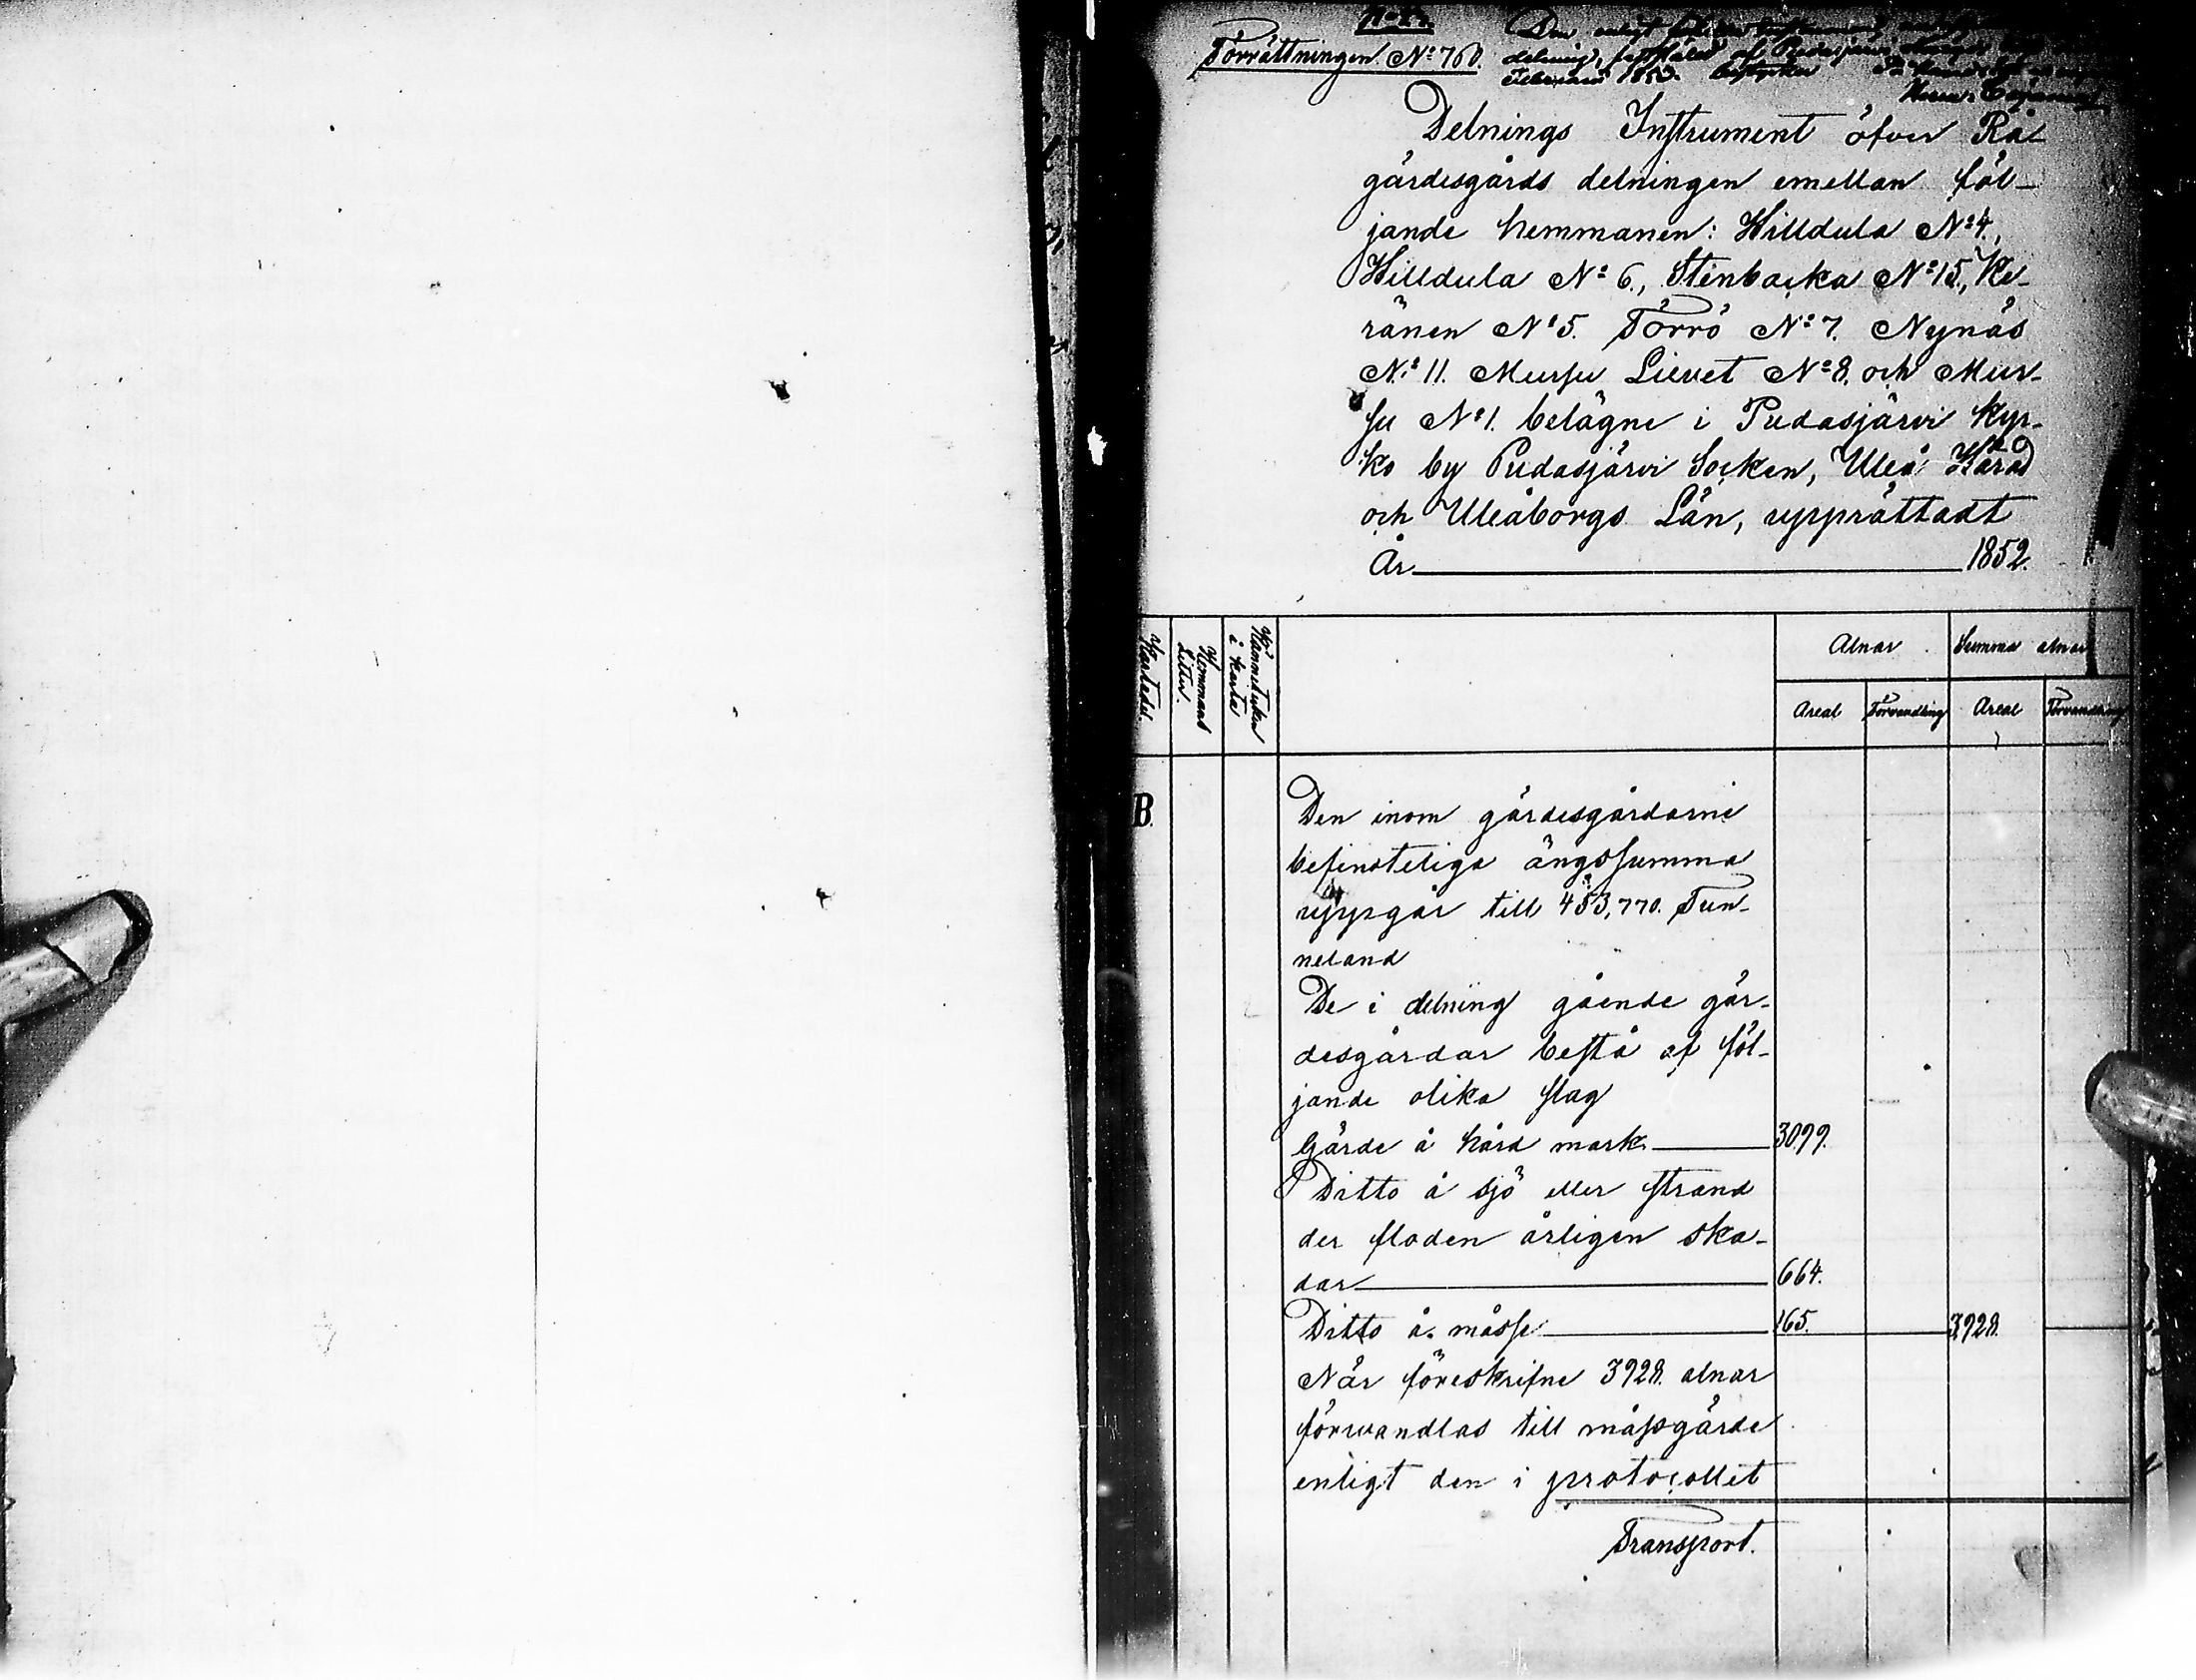 Förrättningen. No 760.
Den enligt
delning,
Februari 185 .
Delnings Instrument öfver Rå-
gärdesgårds delningen emellan föl-
jande hemmanen: Hilldula No 4.,
Hilldula No 6., Stenbacka No 15., Ke-
ränen No 5. Törrö No 7. Nynäs
No 11. Mursu Lievet No 8. och Mur-
su No 1. belägne i Pudasjärvi Kyr-
ko by Pudasjärvi Socken, Uleå Härad
och Uleåborgs Län, upprättadt
År 1852.
Kartedel.
Hemmans Litter.
i karta
Alnar Summa alnar
Areal Förvandling Areal Förvandling
B. Den inom gärdesgårdarne
befinteliga ängssumma
uppgår till 453,770. Tun-
neland
De i delning gående gär-
desgårdar bestå af föl-
jande olika slag
Gärde å hård mark 3099.
Ditto å sjö eller strand
der floden årligen ska-
dar 664.
Ditto å måsse 165. 3928.
När föreskrifne 3928. alnar
förwandlas till måssgärde
enligt den i protocollet
Transport.